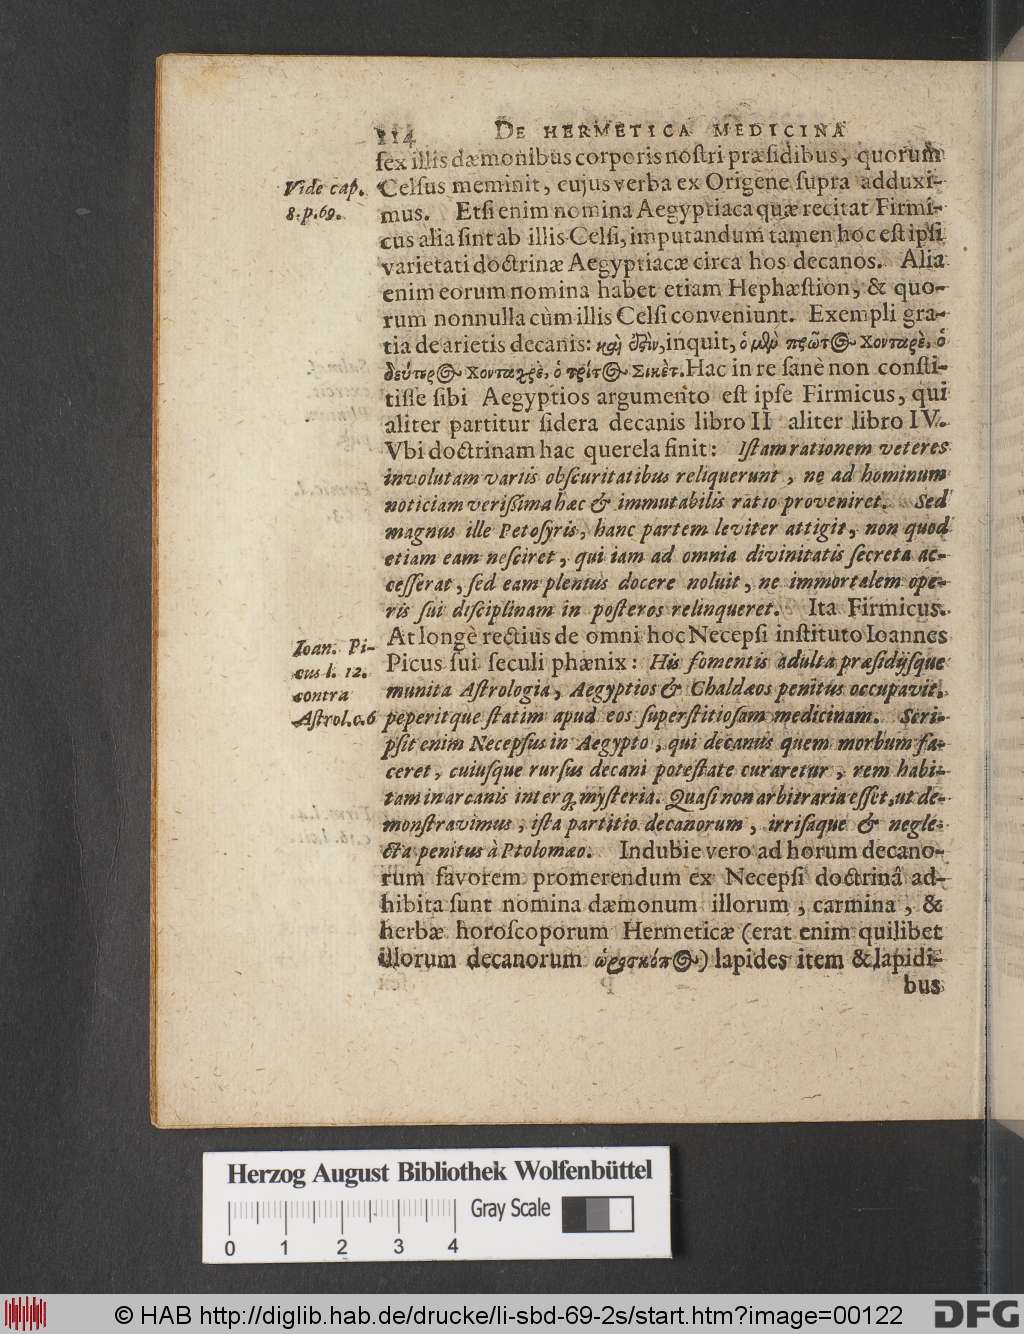 114 DE HERMETICA MEDICINA
sex illis dæmonibus corporis nostri præsidibus, quorum
Vide cap.
8. p. 69.
Celsus meminit, cujus verba ex Origene supra adduxi-
mus. Etsi enim nomina Aegyptiaca quæ recitat Firmi-
cus alia sint ab illis Celsi, imputandum tamen hoc est ipsi
varietati doctrinæ Aegyptiacæ circa hos decanos. Alia
enim eorum nomina habet etiam Hephæstion, & quo-
rum nonnulla cùm illis Celsi conveniunt. Exempli gra-
tia de arietis decanis: καὶ ἔξιν, inquit, ὁ μὲν πρῶτος Χονταρὲ, ὁ
δεύτερος Χονταχρὲ, ὁ τρίτος Σικὲτ. Hac in re sanè non consti-
tisse sibi Aegyptios argumento est ipse Firmicus, qui
aliter partitur sidera decanis libro II aliter libro IV.
Vbi doctrinam hac querela finit: Istam rationem veteres
involutam variis obscuritatibus reliquerunt, ne ad hominum
noticiam verissima hæc & immutabilis ratio proveniret. Sed
magnus ille Petosyris, hanc partem leviter attigit, non quod
etiam eam nesciret, qui iam ad omnia divinitatis secreta ac-
cesserat, sed eam plenius docere noluit, ne immortalem ope-
ris sui disciplinam in posteros relinqueret. Ita Firmicus.
At longè rectius de omni hoc Necepsi instituto Ioannes
Ioan. Pi-
cus l. 12.
contra
Astrol. c. 6
Picus sui seculi phænix: His fomentis adulta præsidijsque
munita Astrologia, Aegyptios & Chaldæos penitus occupavit,
peperitque statim apud eos superstitiosam medicinam. Scri-
psit enim Necepsus in Aegypto, qui decanus quem morbum fa-
ceret, cuiusque rursus decani potestate curaretur, rem habi-
tam in arcanis interq; mysteria. Quasi non arbitraria esset, ut de-
monstravimus, ista partitio decanorum, irrisaque & negle-
cta penitus à Ptolomæo. Indubie vero ad horum decano-
rum favorem promerendum ex Necepsi doctrinâ ad-
hibita sunt nomina dæmonum illorum, carmina, &
herbæ horoscoporum Hermeticæ (erat enim quilibet
illorum decanorum ὡροσκόπος) lapides item & lapidi-
bus
Herzog August Bibliothek Wolfenbüttel
Gray Scale
0 1 2 3 4
© HAB http://diglib.hab.de/drucke/li-sbd-69-2s/start.htm?image=00122
DFG